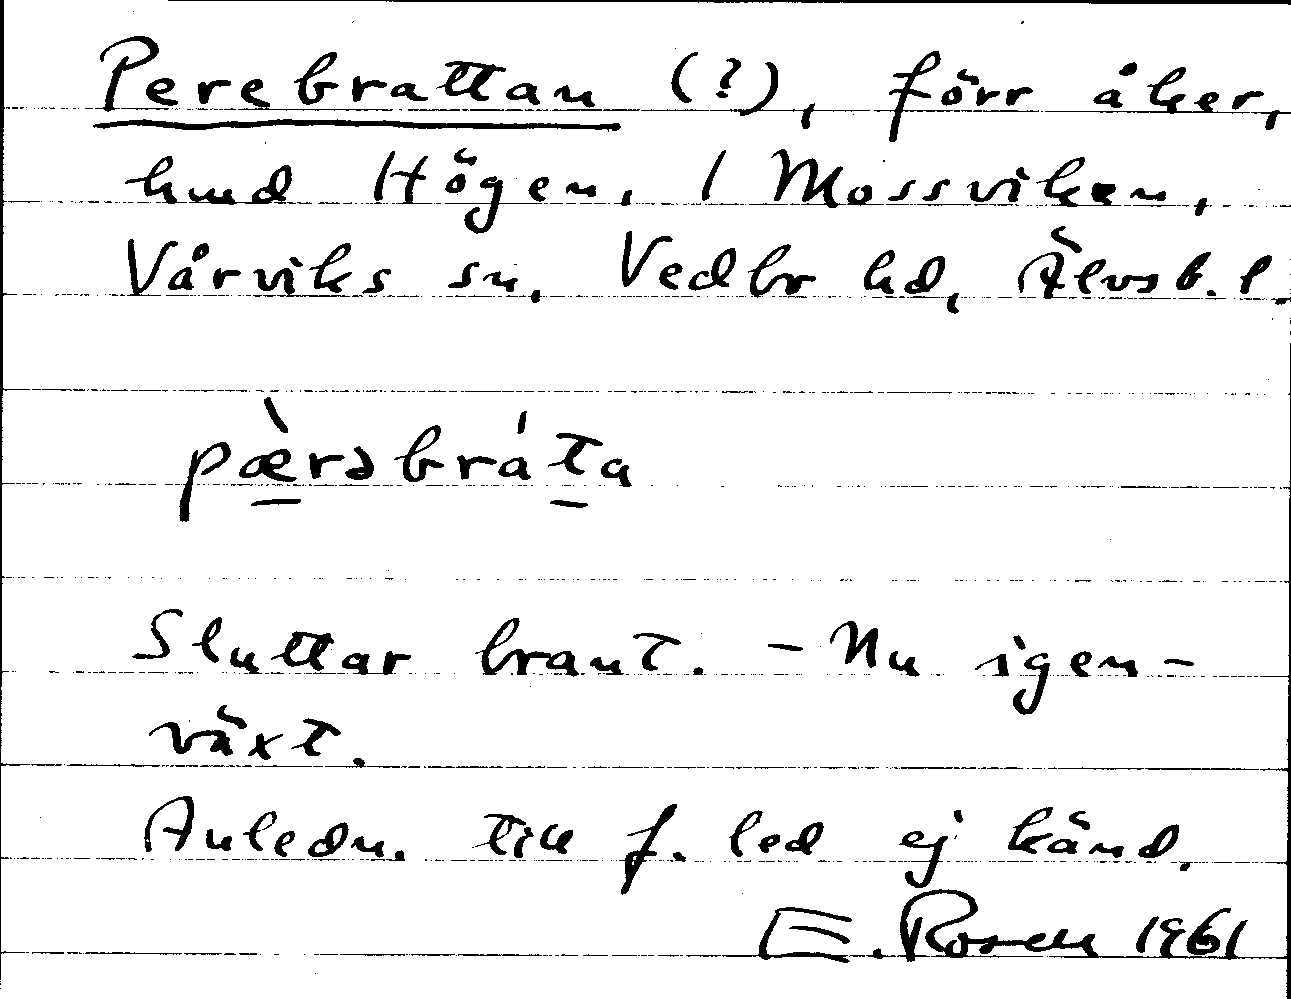 Perebrattan (?), förr åker,
hmd Högen, 1 Mossviken,
Vårviks sn, Vedbo hd, Älvsb. l.
pæ̀rəbráta
Sluttar brant. – Nu igen-
växt.
Anledn. till f. led ej känd.
E. Rosell 1961